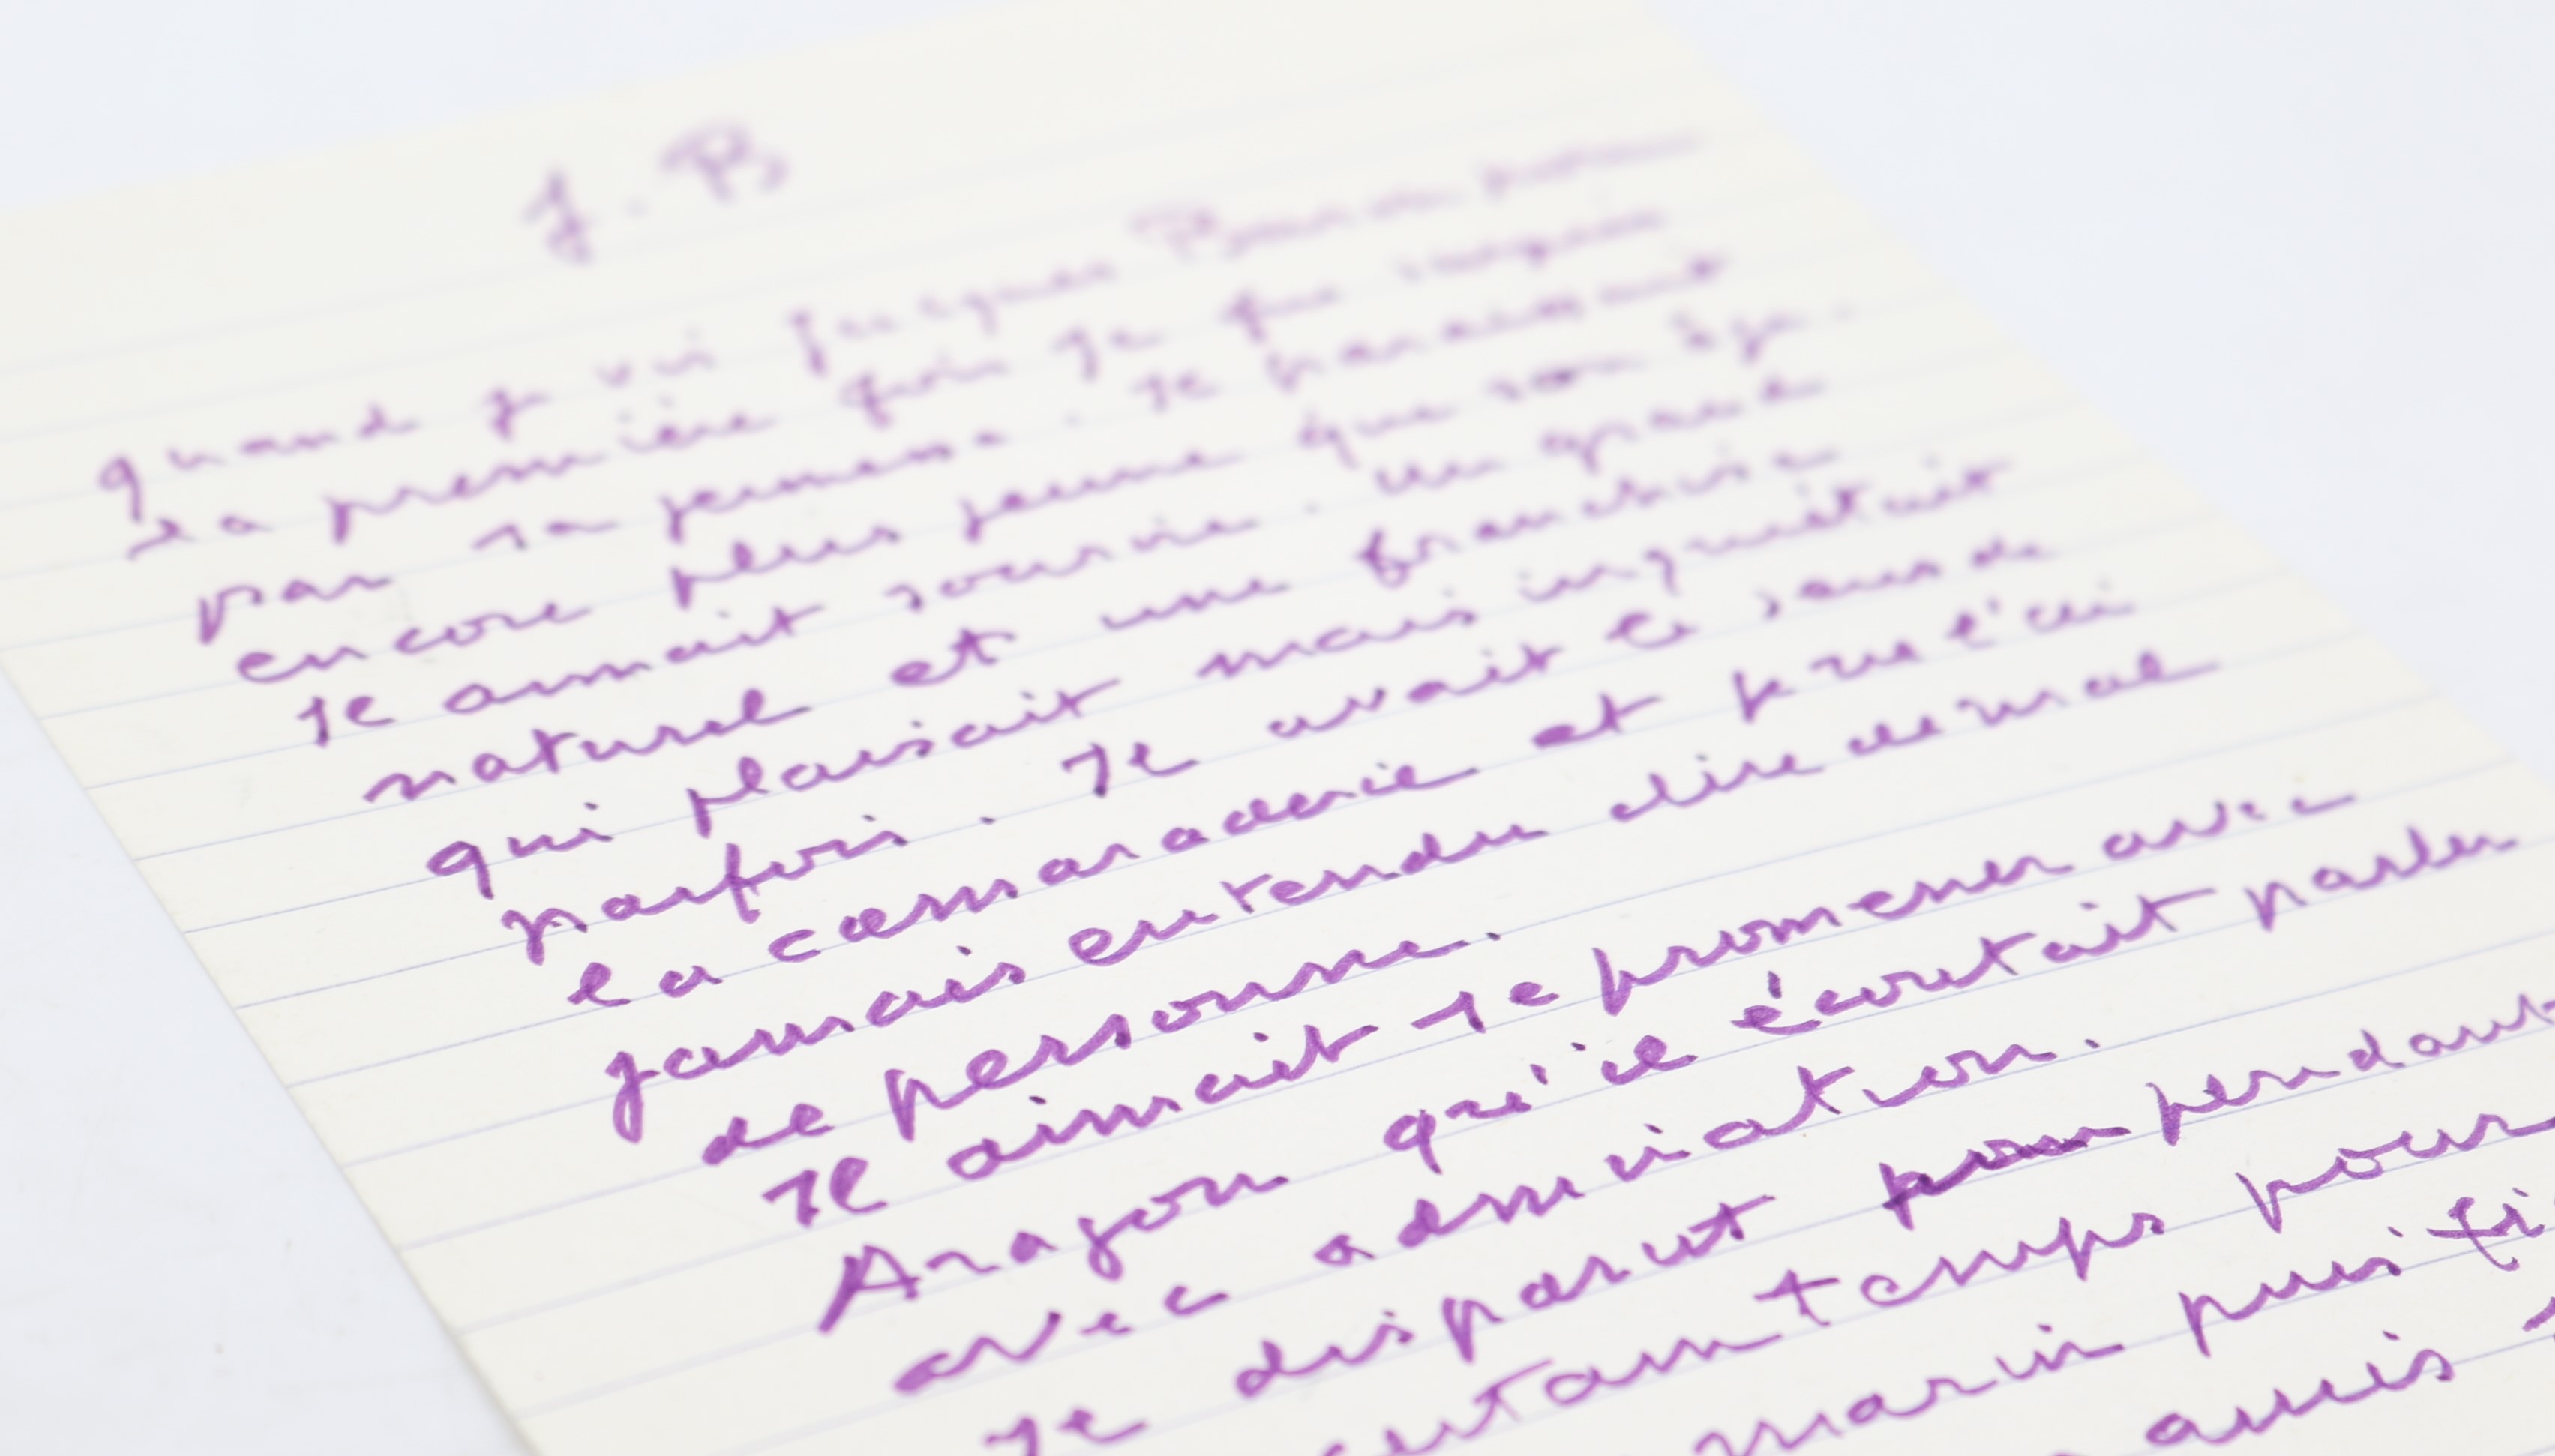 J. B
quand je vis Jacques Baron pour
la première fois je fus surpris
par sa jeunesse. Il paraissait
encore plus jeune que son âge.
Il aimait sourire. Un grand
naturel et une franchise
qui plaisait mais inquiétait
parfois. Il avait le sens de
la camaraderie et je ne l'ai
jamais entendu dire de mal
de personne.
Il aimait se promener avec
Aragon qu'il écoutait parler
avec admiration.
Il disparut pendant
certain temps pour
marin puis
amis